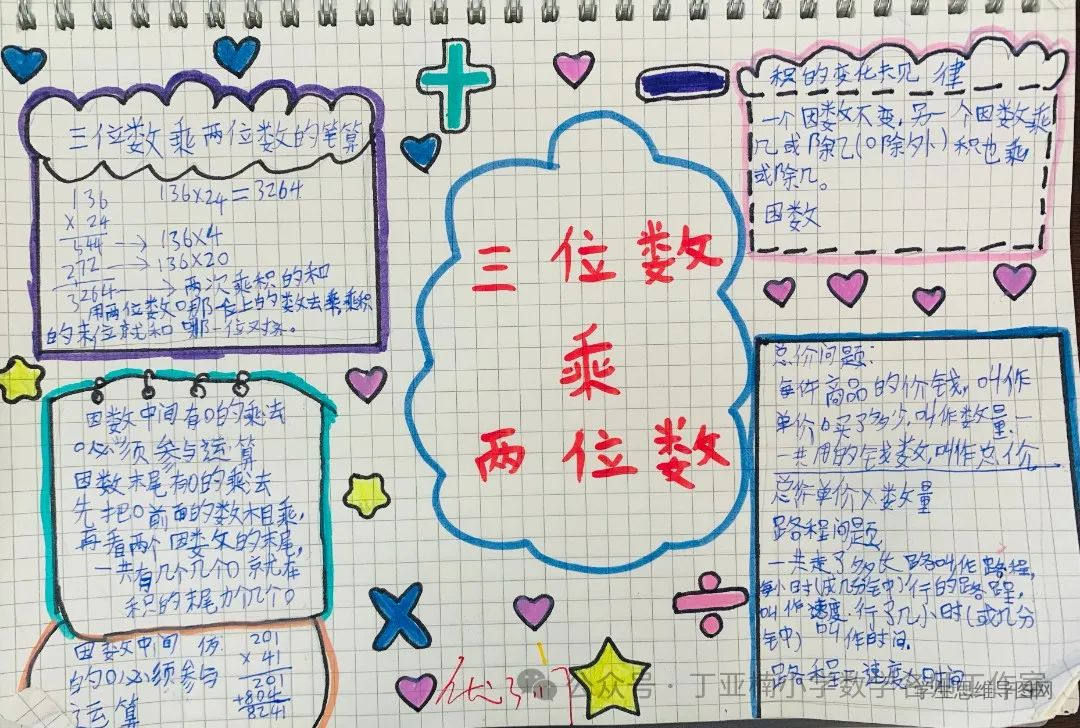 三位数乘两位数的笔算
136 136×24=3264
× 24
544 → 136×4
272 → 136×20
3264 → 两次乘积的和
用两位数 哪一位上的数去乘,乘积
的末位就和哪一位对齐。
因数中间有0的乘法
0必须参与运算
因数末尾有0的乘法
先把0前面的数相乘,
再看两个因数的末尾,
一共有几个几个0就在
积的末尾加几个0
因数中间
的0必须参与
运算
201
× 41
201
+804
8241
三位数
乘
两位数
积的变化规律
一个因数不变,另一个因数乘
几或除几(0除外)积也乘
或除几。
因数
总价问题:
每件商品的价钱,叫作
单价,买了多少,叫作数量.一
一共用的钱数,叫作总价
总价单价×数量
路程问题
一共走了多长路叫作路程,
每小时(或几分钟)行的路程,
叫作速度.行了几小时(或几分
钟)叫作时间.
路程 速度×时间
公众号·丁亚楠小学数学
学生思维导图网